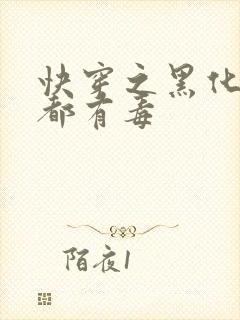 快穿之黑化
都有毒
陌夜1